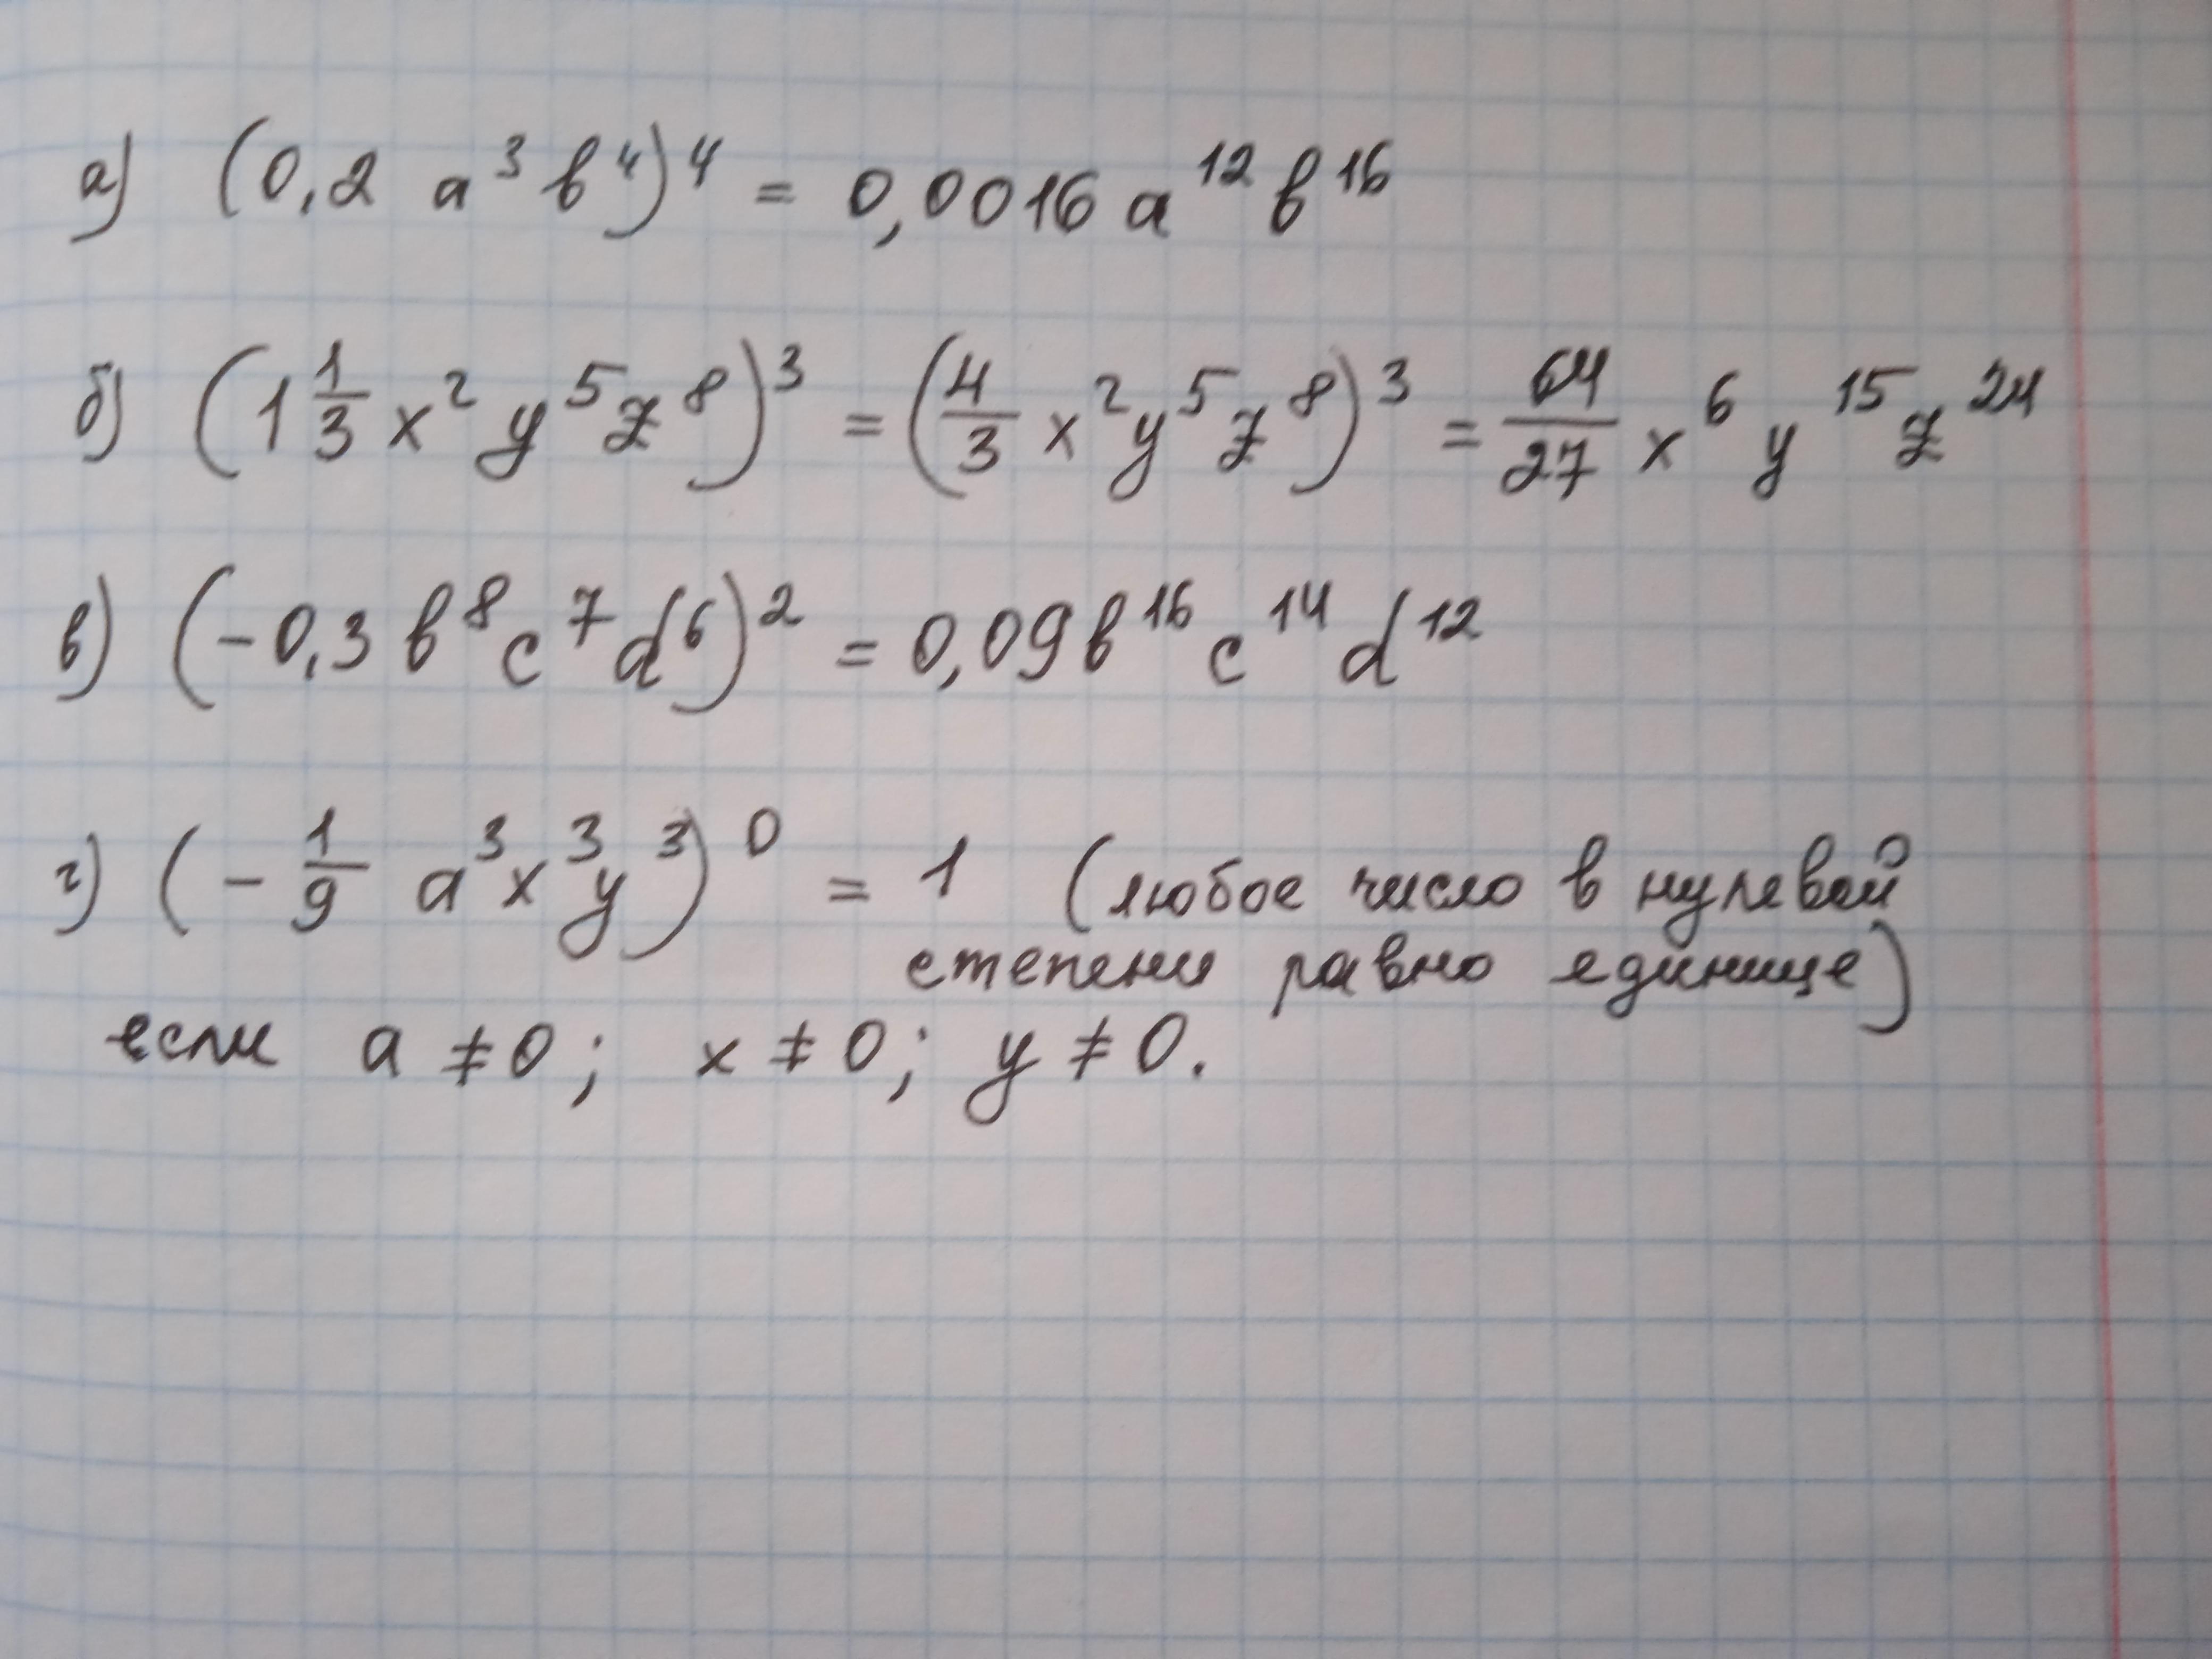 а) (0,2 a³ b⁴)⁴ = 0,0016 a¹² b¹⁶
б) (1 1/3 x² y⁵ z⁸)³ = (4/3 x² y⁵ z⁸)³ = 64/27 x⁶ y¹⁵ z²⁴
в) (-0,3 b⁸ c⁷ d⁶)² = 0,09 b¹⁶ c¹⁴ d¹²
г) (- 1/9 a³ x³ y³)⁰ = 1 (любое число в нулевой
степени равно единице)
если a ≠ 0; x ≠ 0; y ≠ 0.